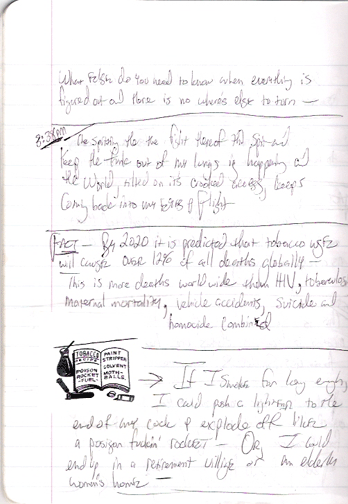 What else do you need to know when everything is
figured out and there is no where's else to turn —
8:38pm
the fight thereof the Spit and
keep the out of my lungs is happening and
the World, tilted on its crooked access, keeps
Coming back into my of flight
FACT — By 2020 it is predicted that tobacco use
will cause over 12% of all deaths globally —
This is more deaths world wide than HIV, tuberculosis,
maternal mortality, vehicle accidents, suicide and
homocide combined
TOBACCO
POISON
ROCKET
FUEL
PAINT
STRIPPER
SOLVENT
MOTH-
BALLS
→ If I smoke for long enough
I could push a lighter to the
end of my cock & explode off like
a poison fuckin' rocket — OR, I could
end up in a retirement village or an elderly
women's home —